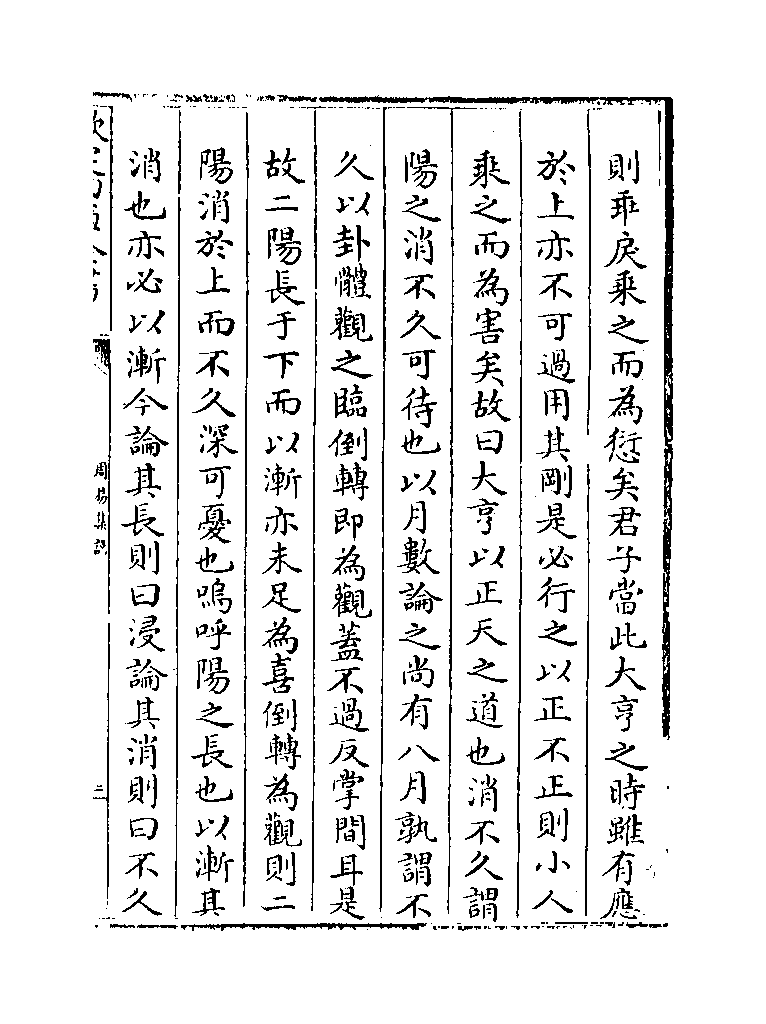 則乖戾乘之而為愆矣君子當此大亨之時雖有應
於上亦不可過用其剛是必行之以正不正則小人
乘之而為害矣故曰大亨以正天之道也消不久謂
陽之消不久可待也以月數論之尚有八月孰謂不
久以卦體觀之臨倒轉即為觀蓋不過反掌間耳是
故二陽長于下而以漸亦未足為喜倒轉為觀則二
陽消於上而不久深可憂也嗚呼陽之長也以漸其
消也亦必以漸今論其長則曰浸論其消則曰不久
周易集說
三